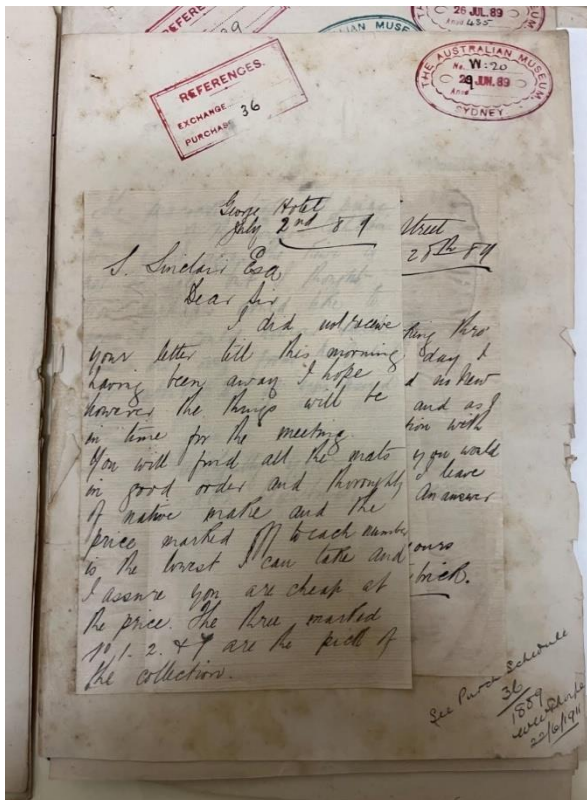 26 JUL. 89
435
AN MUSE
REFERENCES.
EXCHANGE
PURCHASE 36
THE AUSTRALIAN MUSEUM
No. W:20
29 JUN. 89
SYDNEY
George Hotel
July 2nd 89
S. Sinclair Esq
Dear Sir
I did not receive
your letter till this morning
having been away I hope
however the things will be
in time for the meeting.
You will find all the mats
in good order and thoroughly
of native make and the
price marked to each number
is the lowest I can take and
I assure you are cheap at
the price. The three marked
No 1. 2. & 7 are the pick of
the collection.
Street
28th 89
thro
day I
New
and as I
with
you would
leave
An answer
yours
See Purch Schedule
36
1889
22/6/1911